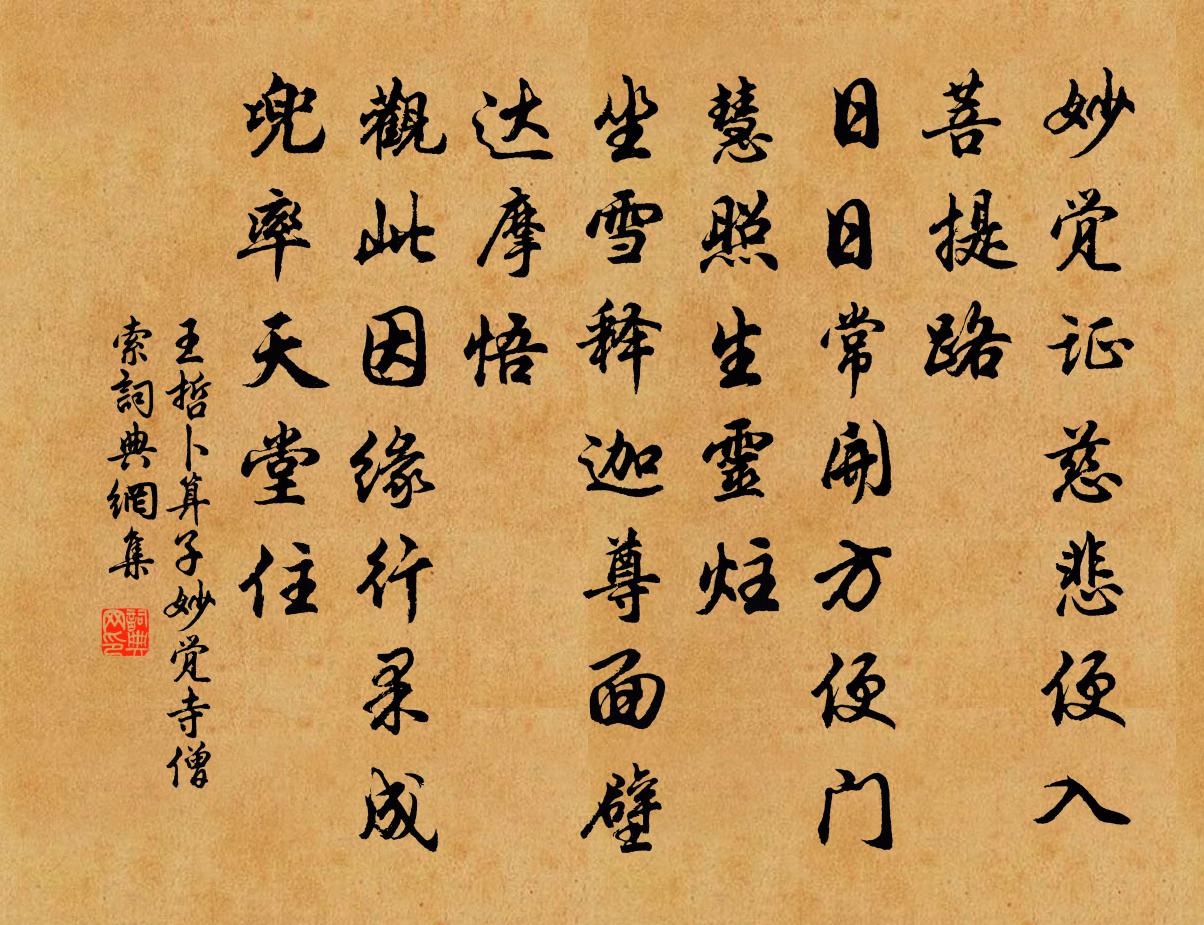 妙觉证慈悲便入
菩提路
日日常开方便门
慧照生靈炷
坐雪释迦尊面壁
达摩悟
觀此因缘行果成
兜率天堂住
王哲卜算子妙觉寺僧
索詞典網集
詞典网印